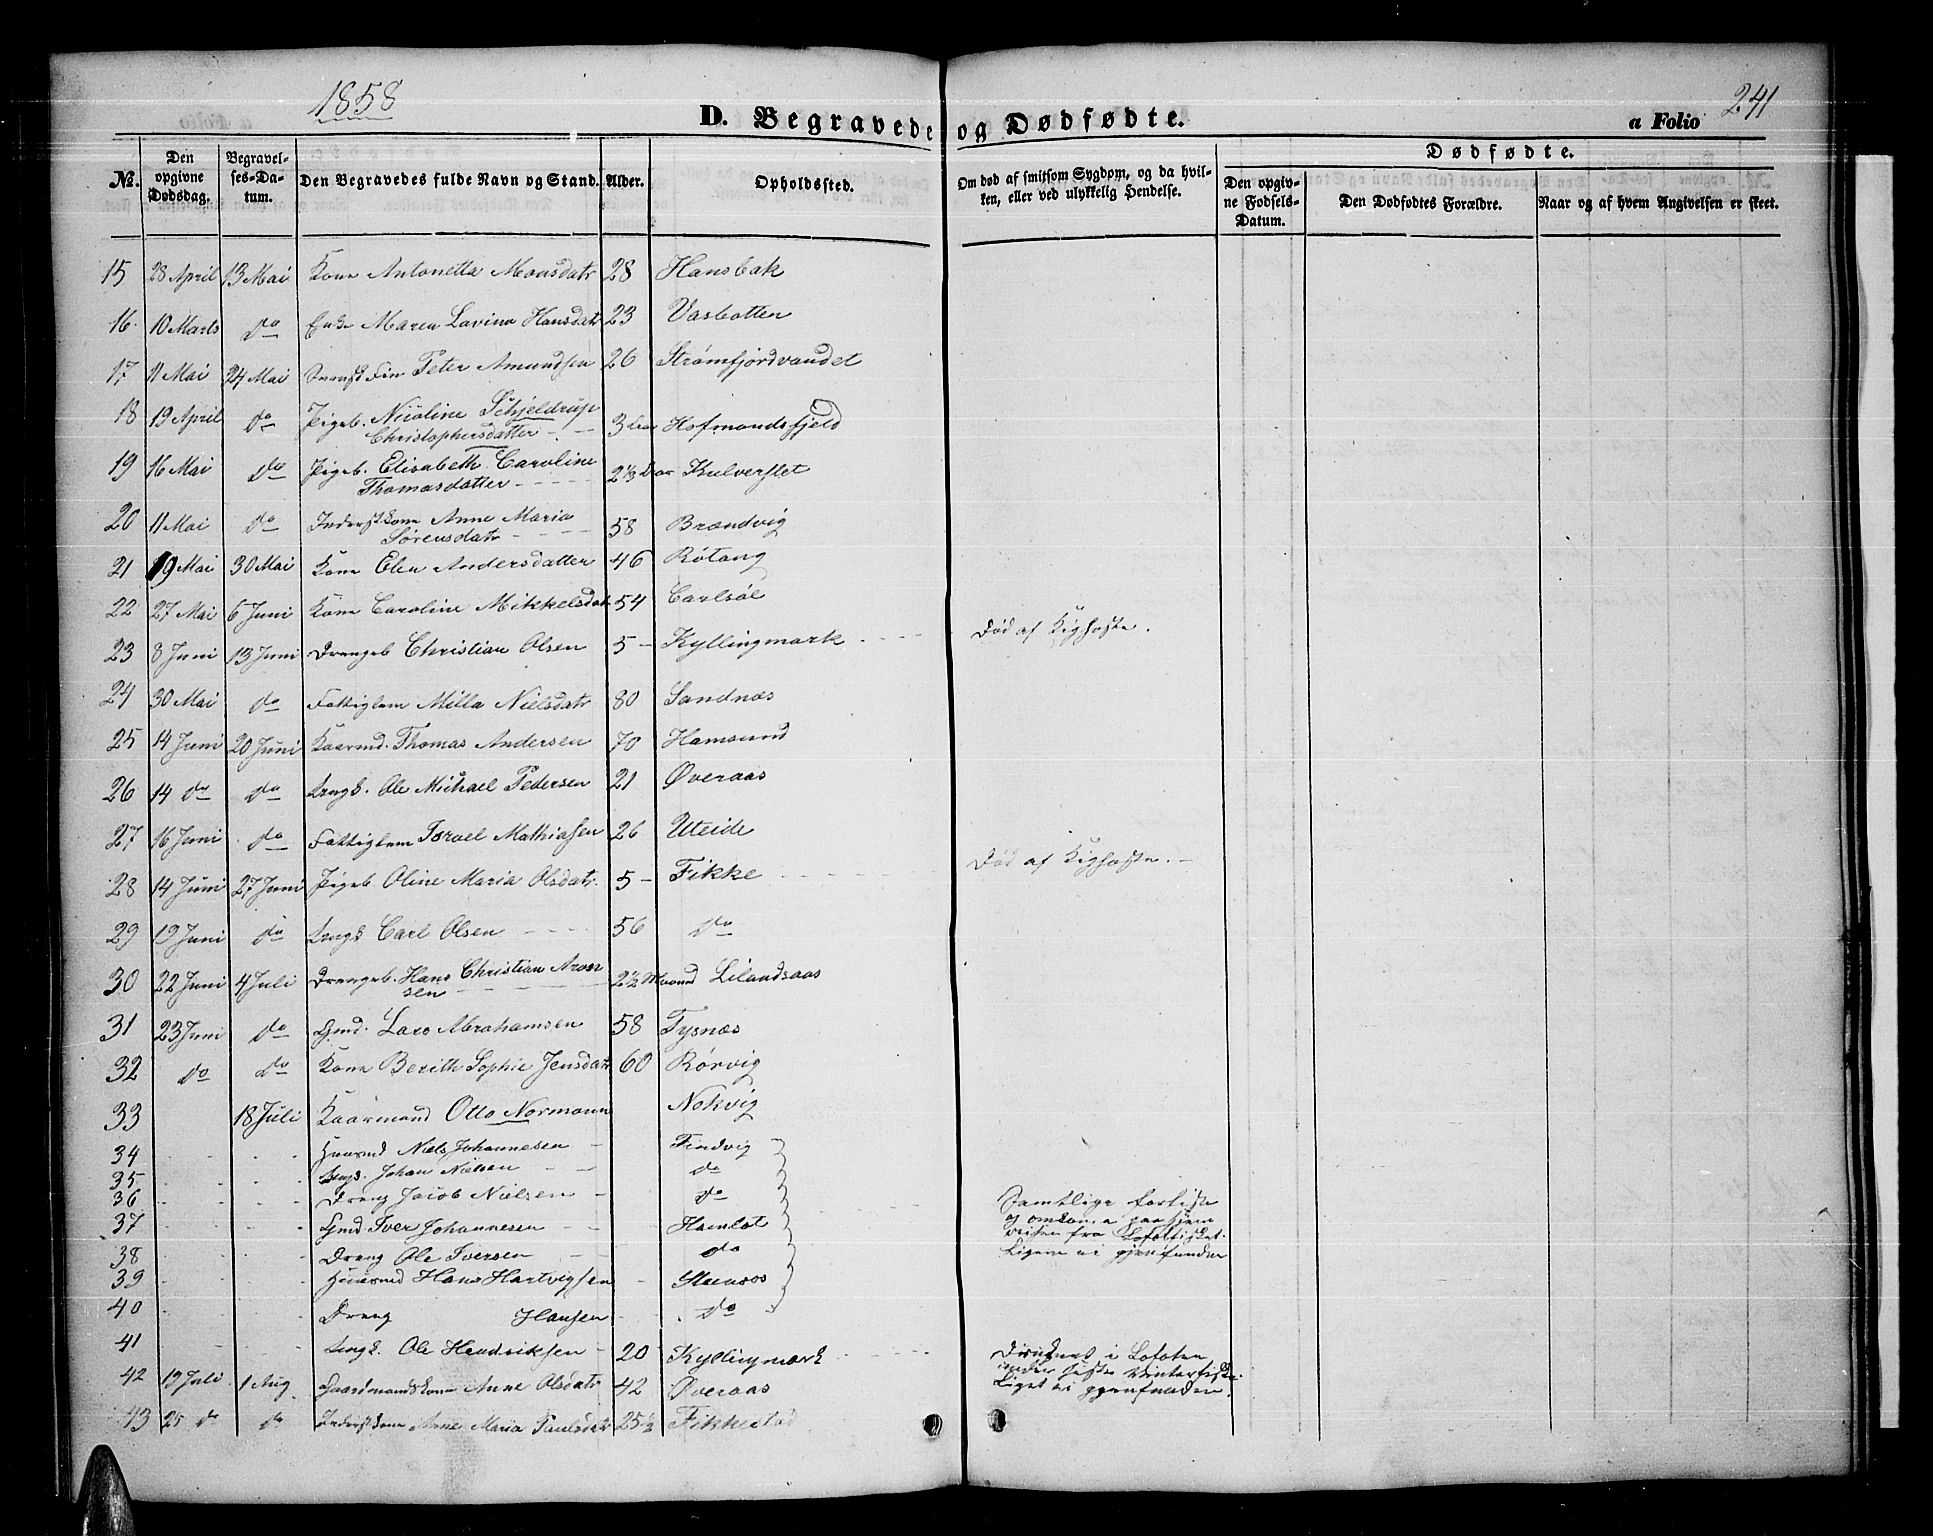 1858
241
D. Begravede og Dødfødte.
a Folio
No.
Den opgivne Dødsdag.
Begravelses-Datum.
Den Begravedes fulde Navn og Stand.
Alder.
Opholdssted.
Om død af smitsom Sygdom, og da hvilken, eller ved ulykkelig Hendelse.
Dødfødte.
Den opgivne Fødsels-Datum.
Den Dødfødtes Forældre.
Naar og af hvem Angivelsen er skeet.
15 28 April 13 Mai Kone Antonetta Monsdatr 28 Hansbak
16. 10 Marts do Enke Maren Lavina Hansdatr 23 Vasbotten
17 11 Mai 24 Mai Peter Amundsen 26 Strømfjordvandet
18 19 April do Pigeb. Nicoline Schjeldrup
Christophersdatter 3 Hofmandsfjeld
19 16 Mai do Pigeb. Elisabeth Caroline
Thomasdatter 2 1/3 Kulverslet
20 11 Mai do Inderstkone Anne Maria
Sørensdatr 58 Brændvig
21 19 Mai 30 Mai Kone Elen Andersdatter 46 Røtang
22 27 Mai 6 Juni Kone Caroline Mikkelsdatr 54 Carlsøl
23 8 Juni 13 Juni Drengeb Christian Olsen 5 - Kyllingmark Død af Kighoste.
24 30 Mai do Fattiglem Milla Nielsdatr 80 Sandnæs
25 14 Juni 20 Juni Kaarmd. Thomas Andersen 70 Hamsund
26 14 do do Ungk. Ole Michael Pedersen 21 Øveraas
27 16 Juni do Fattiglem Israel Mathiasen 26 Uteide
28 14 Juni 27 Juni Pigeb Oline Maria Olsdatr. 5 - Fikke Død af Kighoste. -
29 19 Juni do Ungk Carl Olsen 56 do
30 22 Juni 4 Juli Drengeb. Hans Christian Aron
sen 2 1/2 Maaned Lilandsaas
31 23 Juni do Gmd. Lars Abrahamsen 58 Tysnæs
32 do do Kone Berith Sophie Jensdatr 60 Rørvig
33 18 Juli Kaarmand Otto Normann Nokvig
34 Huusmd Niels Johannesen Findvig
35 Ungk. Johan Nielsen do
36 Dreng Jacob Nielsen do Samtlige forliste
37 Gmd Iver Johannesen Hamlot og omkom paa hjem
38 Dreng Ole Iversen do reisen fra Lofotfisket.
39 Huusmd Hans Hartvigsen Steensos Ligene ei gjenfundne
40 Dreng Hansen do
41 Ungk. Ole Hendriksen 20 Kyllingmark Druknet i Lofoten
under sidste Vinterfiske.
Liget ei gjenfunden.
42 19 Juli 1 Aug Gaardmandskone Anne Olsdatr 42 Øveraas
43 25 do do Inderstkone Anne Maria Paulsdatr 25 1/2 Fikkestad